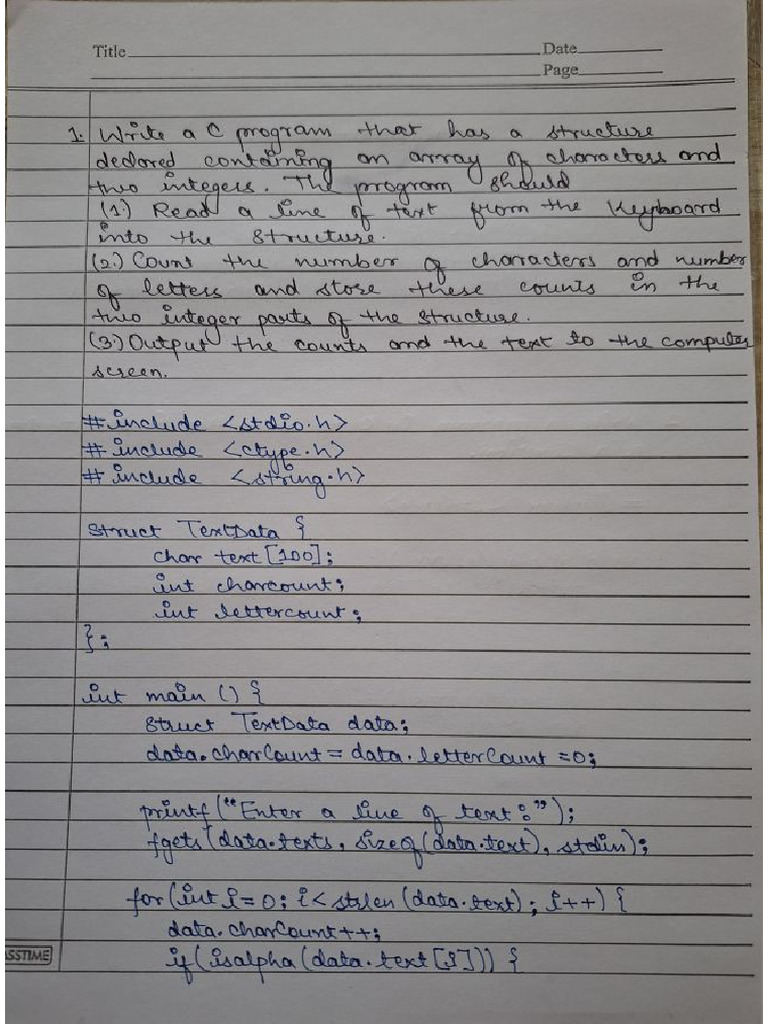 Title Date
Page
1. Write a C program that has a structure
declared containing an array of characters and
two integers. The program should
(1.) Read a line of text from the Keyboard
into the structure.
(2.) Count the number of characters and number
of letters and store these counts in the
two integer parts of the structure.
(3.) Output the counts and the text to the computer
screen.
#include <stdio.h>
#include <ctype.h>
#include <string.h>
struct TextData {
char text[100];
int charcount;
int lettercount;
};
int main () {
struct TextData data;
data.charCount = data.letterCount =0;
printf("Enter a line of text:");
fgets(data.texts, sizeof(data.text), stdin);
for(int i=0; i<strlen(data.text); i++) {
data.charCount++;
if(isalpha(data.text[i])) {
SSTIME